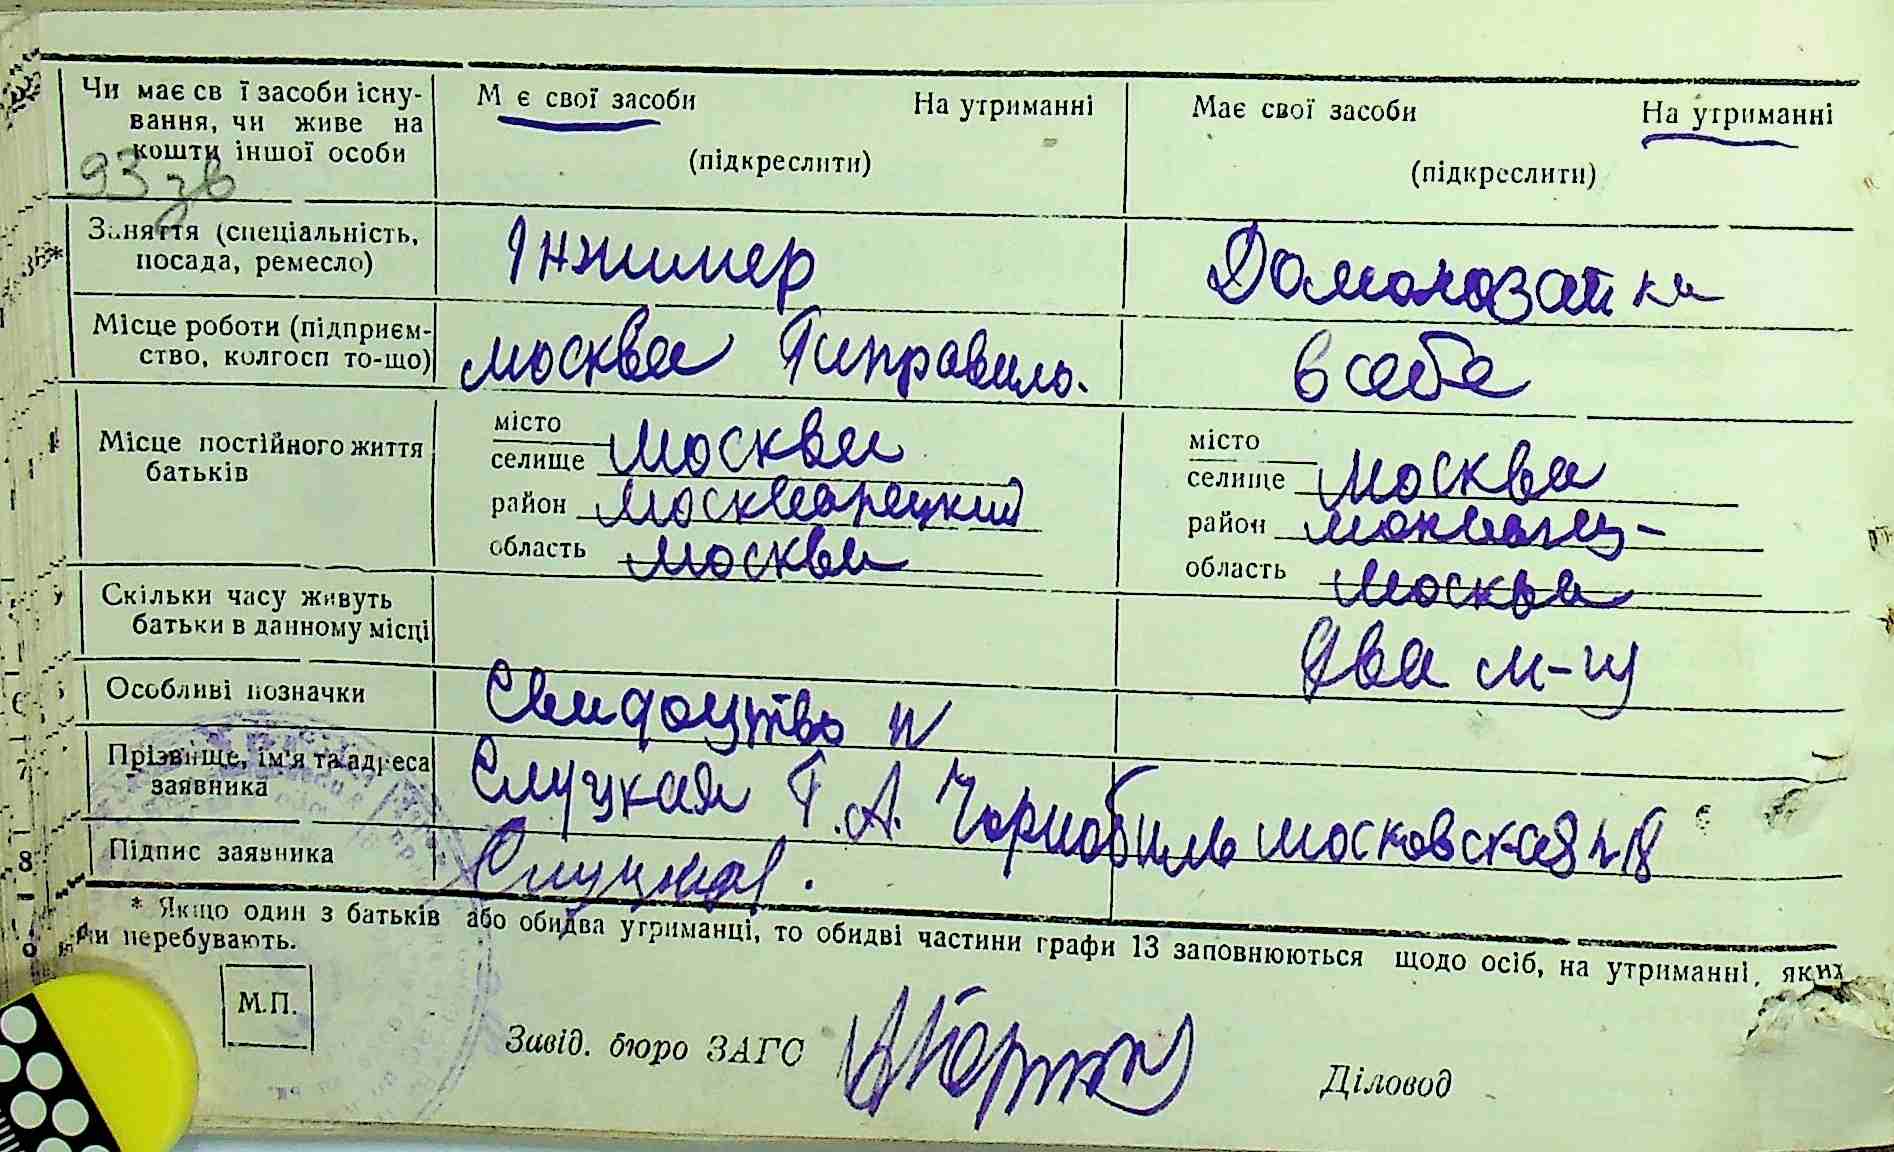 Чи має св ї засоби існу-
вання, чи живе на
кошти іншої особи
93 зв
М є свої засоби На утриманні
(підкреслити)
Має свої засоби На утриманні
(підкреслити)
Заняття (спеціальність,
посада, ремесло)
Інжинер
Домохозайка
Місце роботи (підприєм-
ство, колгосп то-що)
Москва
в себе
Місце постійного життя
батьків
місто
селище Москва
район Москварецкий
область Москва
місто
селище Москва
район
область Москва
Скільки часу живуть
батьки в данному місці
Два м-ці
Особливі позначки
Свидоцтво №
Прізвище, ім'я та адреса
заявника
Слуцкая Г. А. Чорнобиль Московская № 18
Підпис заявника
Слуцкая.
* Якщо один з батьків або обидва утриманці, то обидві частини графи 13 заповнюються щодо осіб, на утриманні, яких
перебувають.
М.П.
Завід. бюро ЗАГС
Діловод